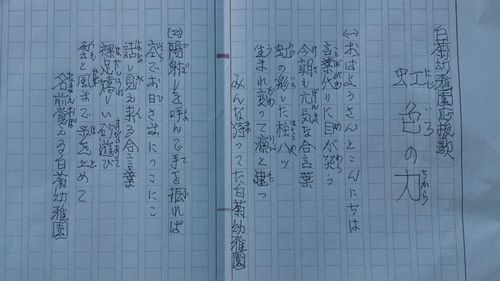 白菊幼稚園応援歌
虹色の力
(一) おはようさんとこんにちは
言葉代りに目が笑う
今朝も元気な合言葉
虹の彩した桧
生まれ変って凛と建つ
みんな待ってた白菊幼稚園
(二) 陽射しを呼んで手を振れば
空でお日さまにっこにこ
見え来る合言葉
裸足嬉しい砂遊び
雲と風まで足を止めて
名前覚える白菊幼稚園